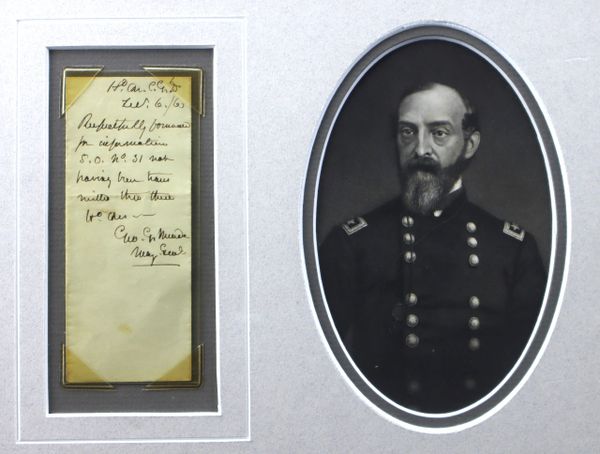 Hd. Qrs. C. G. D.
Feb. 6./63
Respectfully forwarded
for information
S.O. No. 31 not
having been trans
mitted thro these
Hd. Qrs —
Geo. G. Meade
Maj Genl.